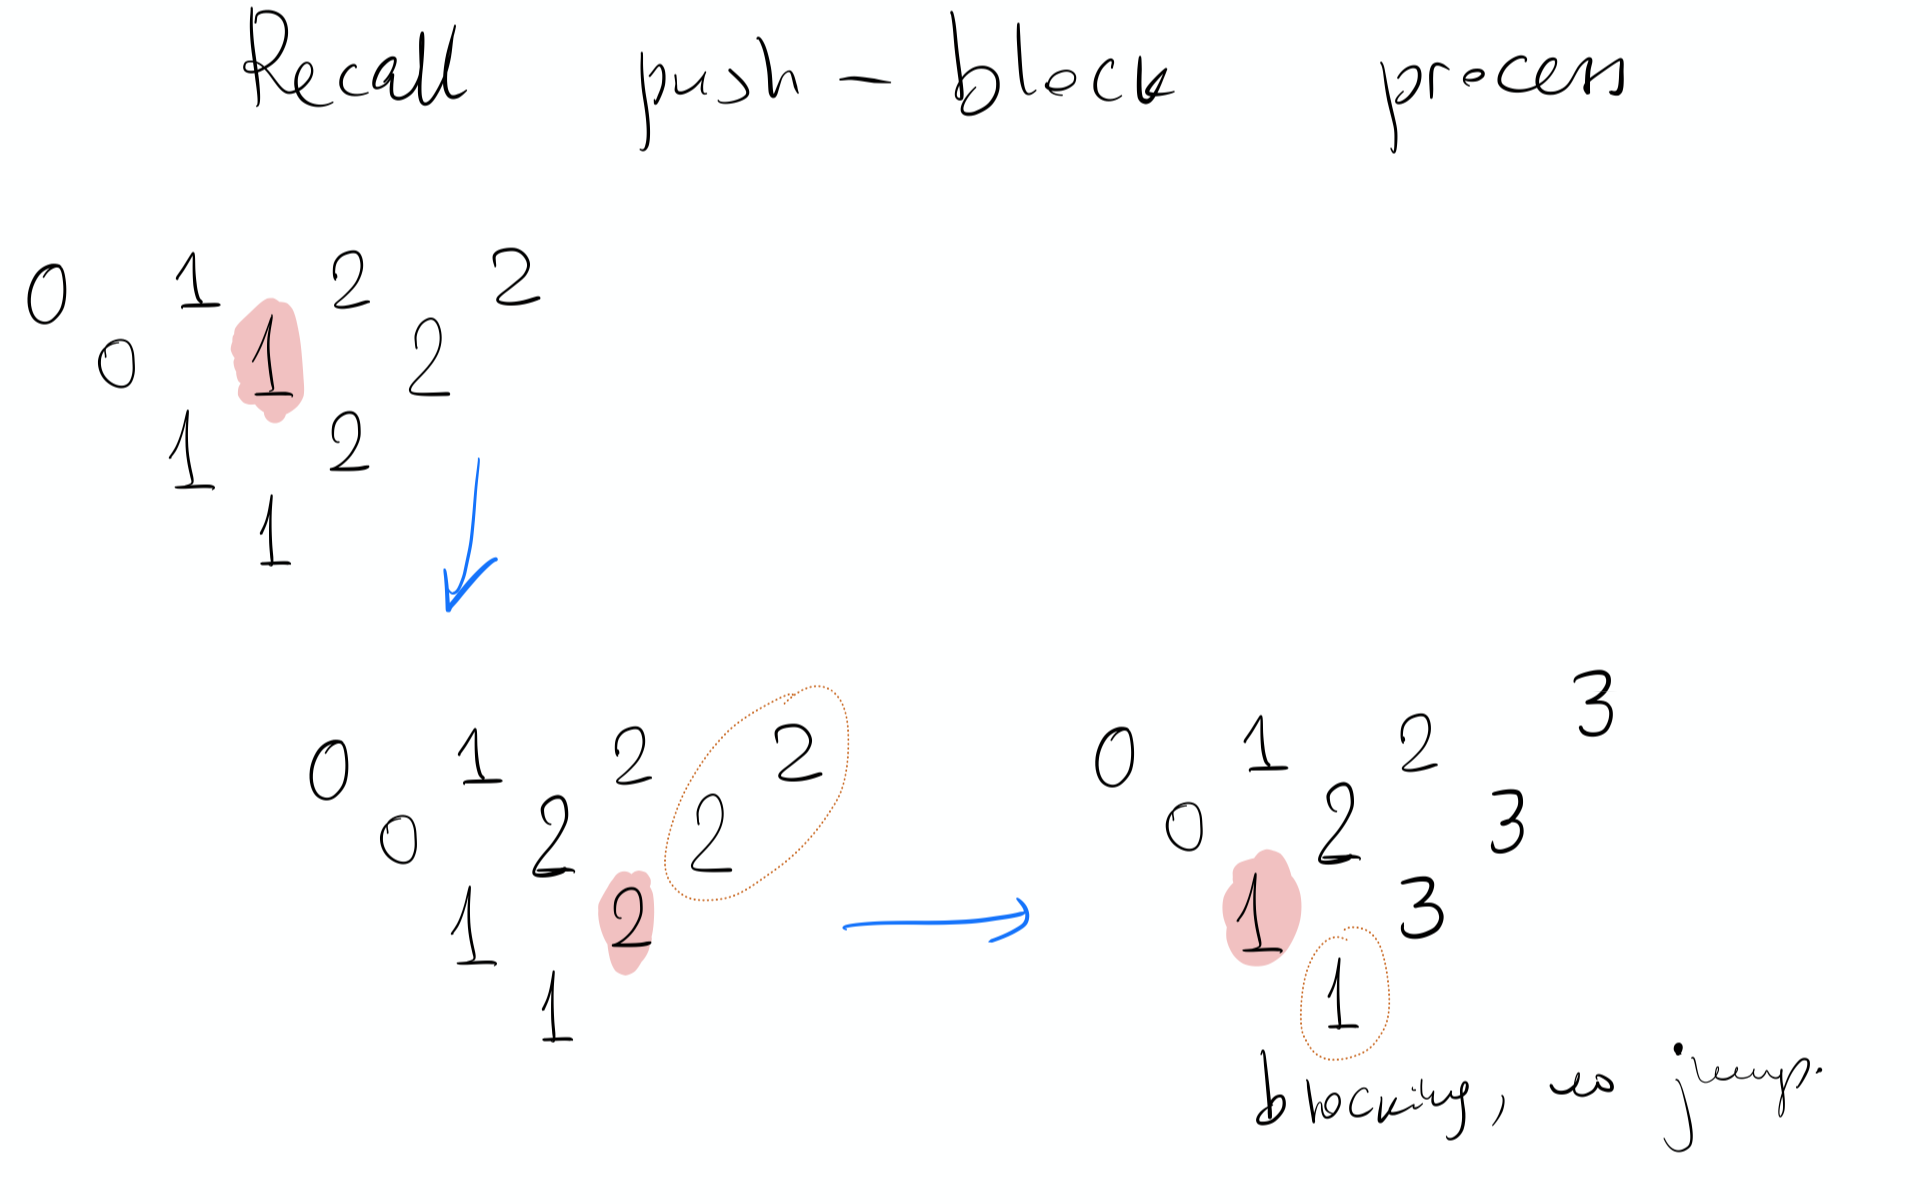 Recall push - block process
0 1 2 2
0 1 2
1 2
1
0 1 2 2
0 2 2
1 2
1
0 1 2 3
0 2 3
1 3
1
blocking, no jump.